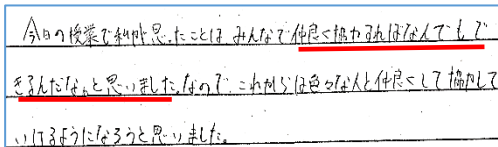 今日の授業で私が思ったことは、みんなで仲良く協力すればなんでもで
きるんだな。と思いました。なので、これからは色々な人と仲良くして協力して
いけるようになろうと思いました。